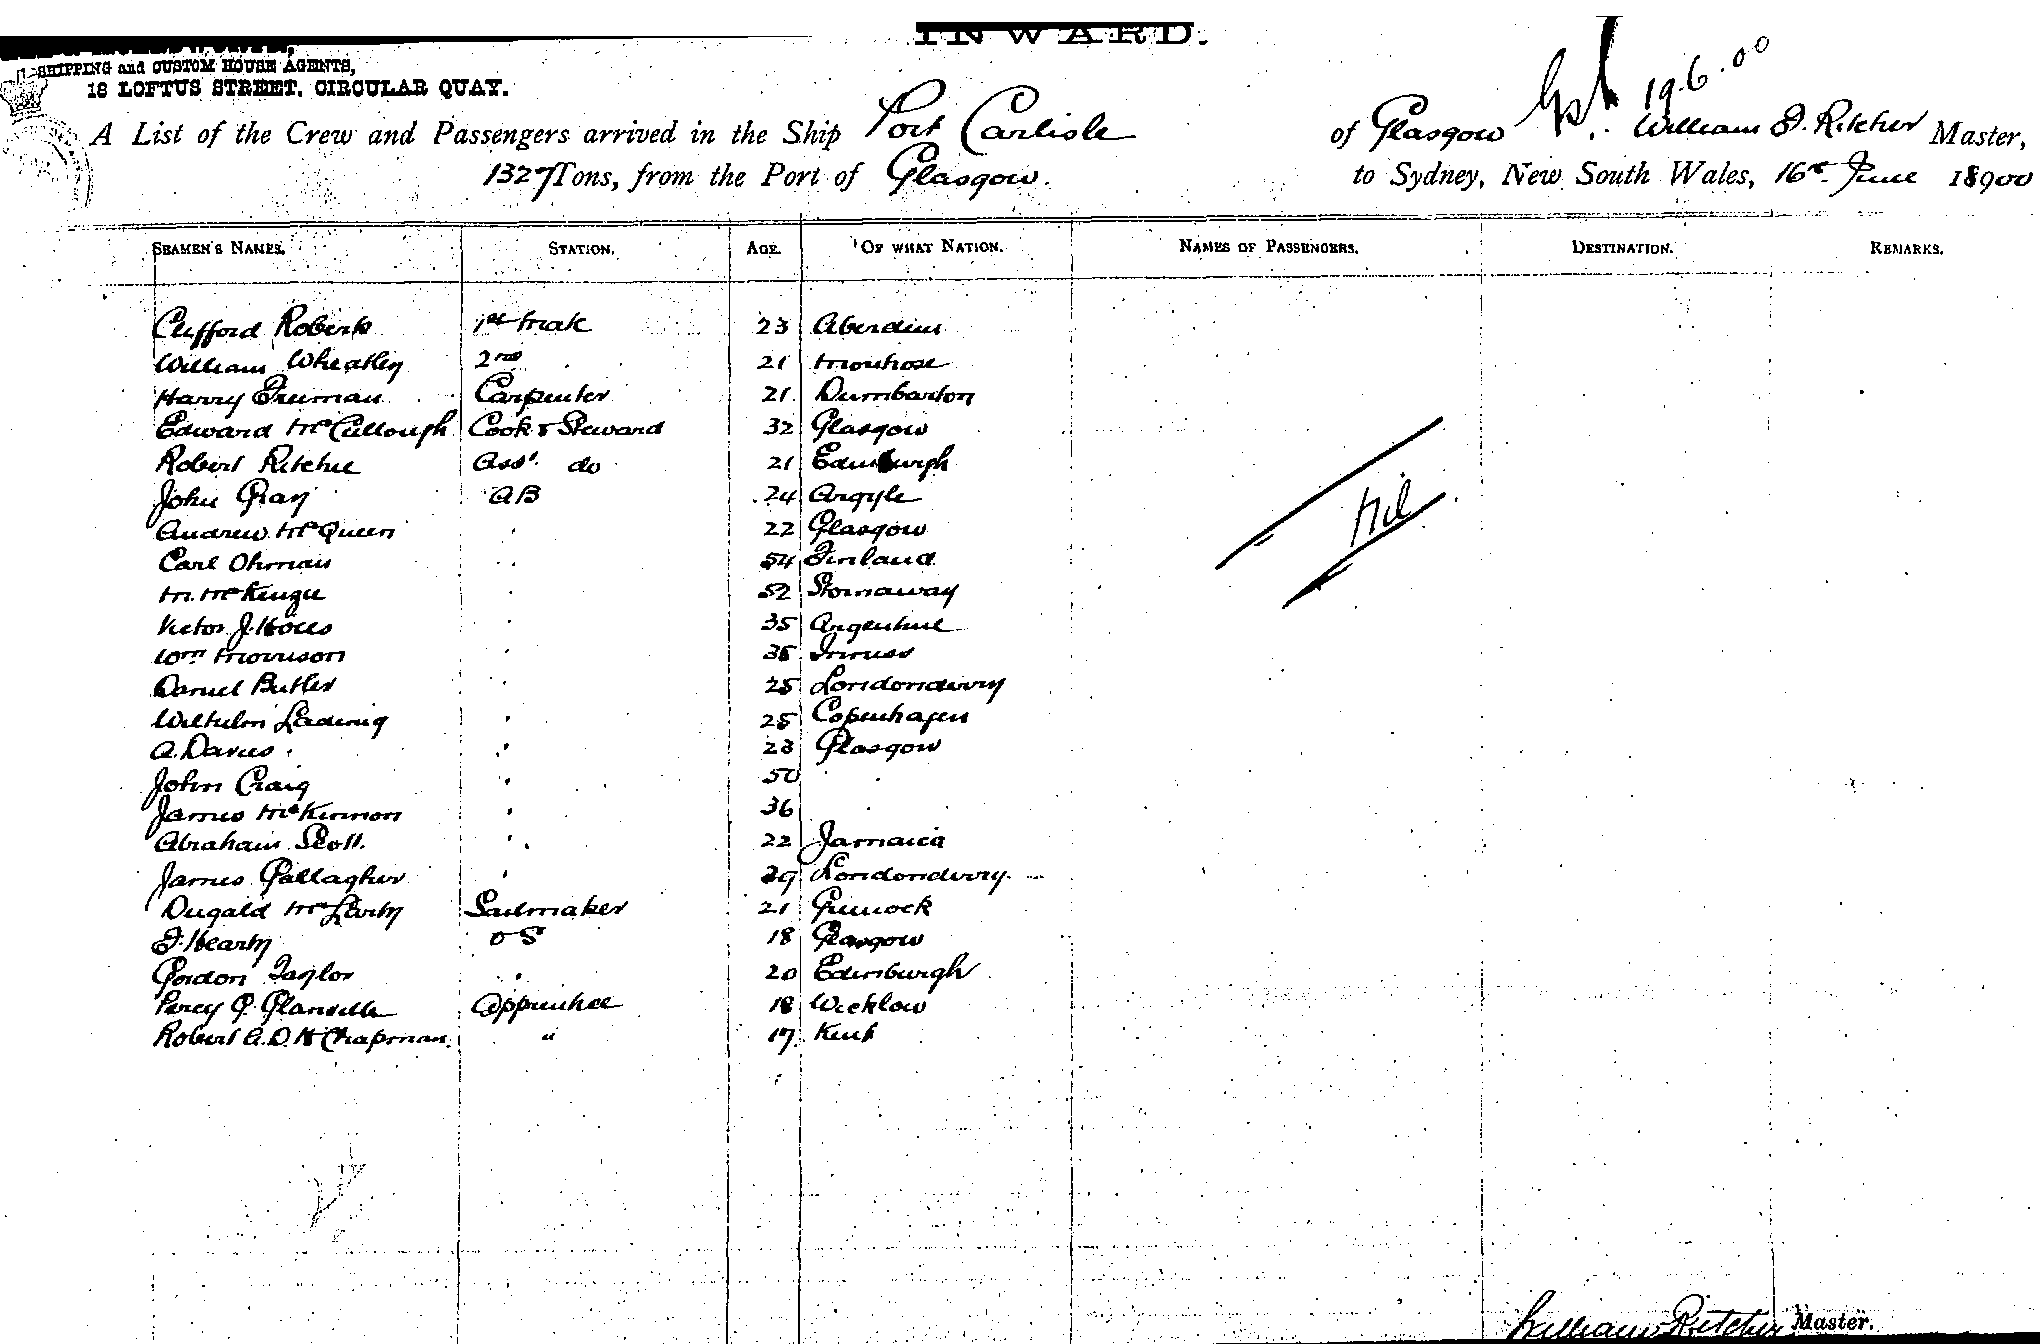 INWARD.
SHIPPING and CUSTOM HOUSE AGENTS,
18 LOFTUS STREET, CIRCULAR QUAY.
19.6.00
A List of the Crew and Passengers arrived in the Ship Port Carlisle of Glasgow William J. Ritchie Master,
1327 Tons, from the Port of Glasgow. to Sydney, New South Wales, 16th June 18900
SEAMEN'S NAMES. STATION. AGE. OF WHAT NATION. NAMES OF PASSENGERS. DESTINATION. REMARKS.
Clifford Roberts 1st Mate 23 Aberdeen
William Wheatley 2nd 21 Montrose
Harry Freeman Carpenter 21 Dumbarton
Edward McCullough Cook & Steward 32 Glasgow
Robert Ritchie Asst. do 21 Edinburgh
John Gray AB 24 Argyle
Andrew McQueen 22 Glasgow
Carl Ohman 54 Finland
M. McKenzie 52 Stornaway
Victor J. 35 Argentine
Wm Morrison 35
Daniel Butler 25 Londonderry
25 Copenhagen
A. Davies 23 Glasgow
John Craig 50
James McKinnon 36
Abraham Scott. 22 Jamaica
James Gallagher 29 Londonderry
Dugald McLarty Sailmaker 21 Greenock
J. Hearty OS 18 Glasgow
Gordon Taylor 20 Edinburgh
Percy G. Glanville Apprentice 18 Wicklow
Robert G. D. H Chapman. " 17 Kent
Nil
William Ritchie Master.